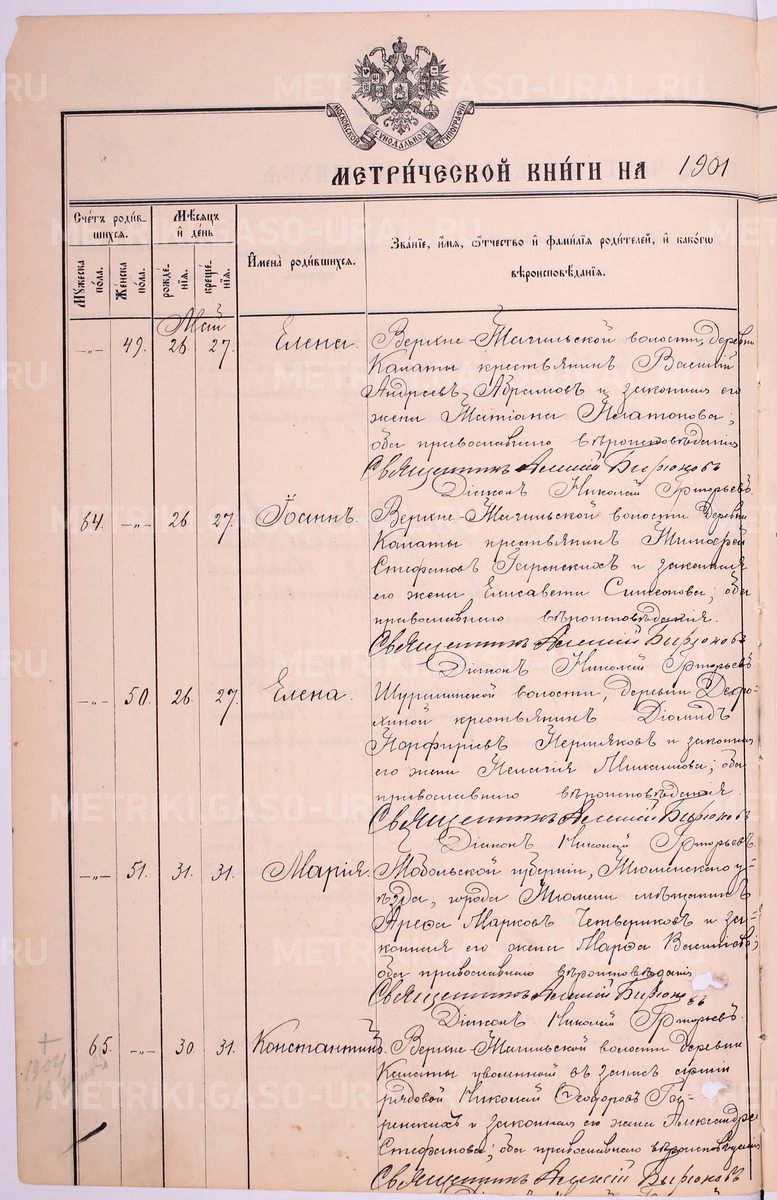 МОСКОВСКОЙ СѴНОДАЛЬНОЙ ТИПОГРАФІИ
МЕТРИ́ЧЕСКОЙ КНИ́ГИ НА 1901
Сче́тъ роди́вшихся.
Мꙋ́жеска по́ла.
Же́нска по́ла.
Мѣ́сяцъ и҆ де́нь
рожде́нїѧ.
креще́нїѧ.
И҆мена̀ роди́вшихсѧ.
Зва́нїе, и҆́мѧ, ѻ҆́тчество и҆ фамилїѧ роди́телей, и҆ како́гѡ
вѣроисповѣ́данїѧ.
Май
-„- 49. 26 27. Елена. Верхне-Тагильской волости, деревни
Калаты крестьянинъ Василій
Андреевъ Абрамовъ и законная его
жена Татіана Платонова;
оба православнаго вѣроисповѣданія
Священникъ Алексій Бирюковъ
Діаконъ Николай Григорьевъ.
64. -„- 26. 27. Іоаннъ. Верхне-Тагильской волости деревни
Калаты крестьянинъ Тимофей
Стефановъ Гаренскихъ и законная
его жена Елисавета Симеонова; оба
православнаго вѣроисповѣданія.
Священникъ Алексій Бирюковъ
Діаконъ Николай Григорьевъ.
-„- 50. 26. 27. Елена. Шуралинской волости, деревни
крестьянинъ Діомидъ
Порфиріевъ Пермяковъ и законная
его жена Пелагія Михаилова; оба
православнаго вѣроисповѣданія.
Священникъ Алексій Бирюковъ
Діаконъ Николай Григорьевъ.
-„- 51. 31. 31. Марія. Тобольской губерніи, Тюменскаго у-
ѣзда, города Тюмени мѣщанинъ
Арефа Марковъ Четвериковъ и за-
конная его жена Марфа Василіева;
оба православнаго вѣроисповѣданія
Священникъ Алексій Бирюковъ
Діаконъ Николай Григорьевъ.
65. -„- 30. 31. Константинъ. Верхне-Тагильской волости деревни
Калаты уволенной въ запасъ арміи
рядовой Николай Ѳеодоровъ Га-
ренскихъ и законная его жена Александра
Стефанова; оба православнаго вѣроисповѣданія
Священникъ Алексій Бирюковъ
METRIKI.GASO-URAL.RU